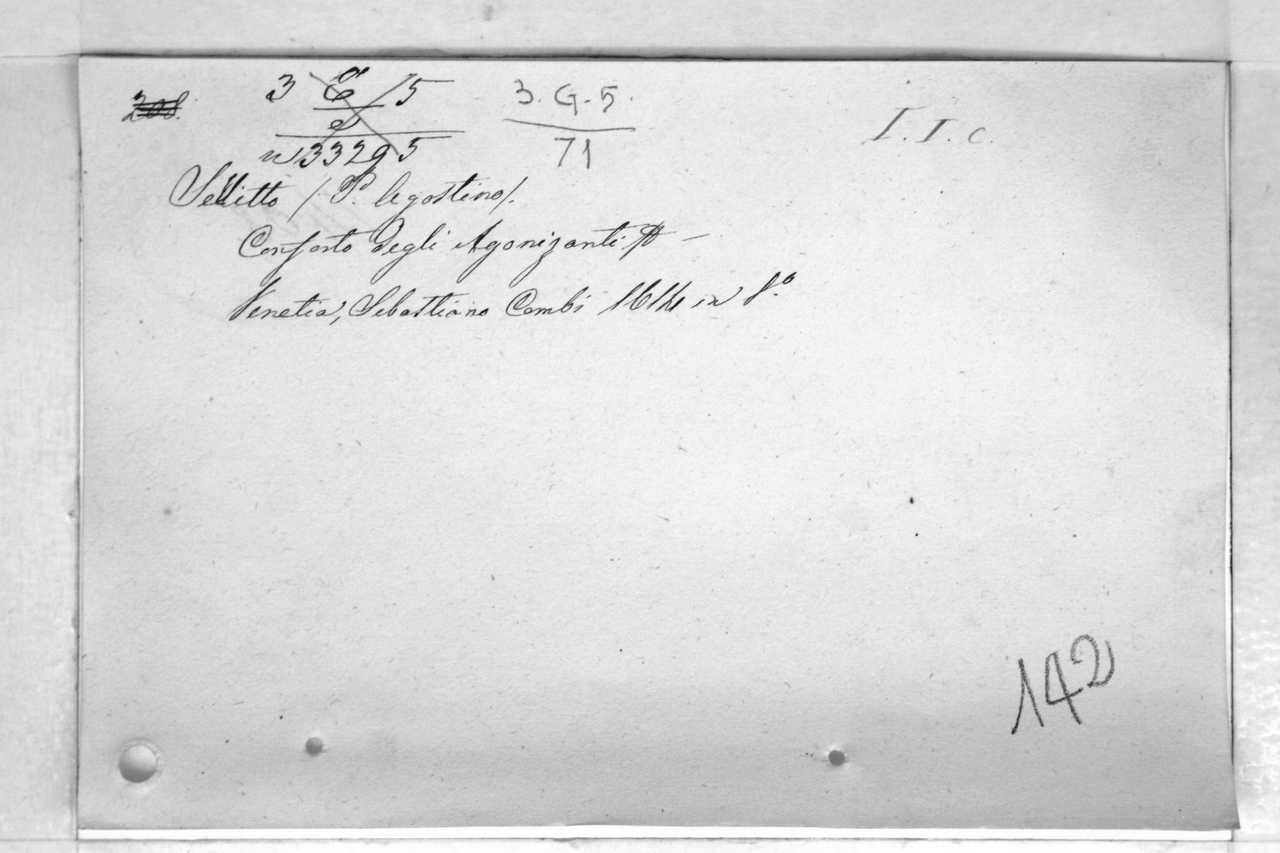 3 E/5
3. G. 5.
I. I. c.
n 33295
71
Sellitto (P. Agostino).
Conforto degli Agonizanti &
Venetia, Sebastiano Combi 1614 in 8.º
142